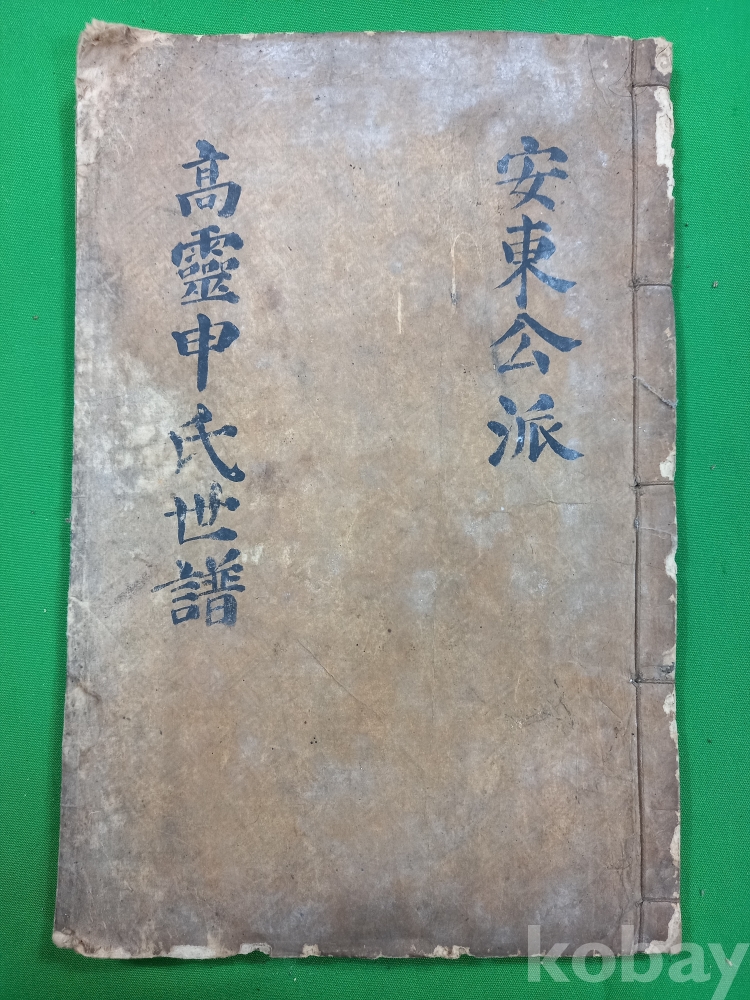 安東公派
髙靈申氏世譜
kobay